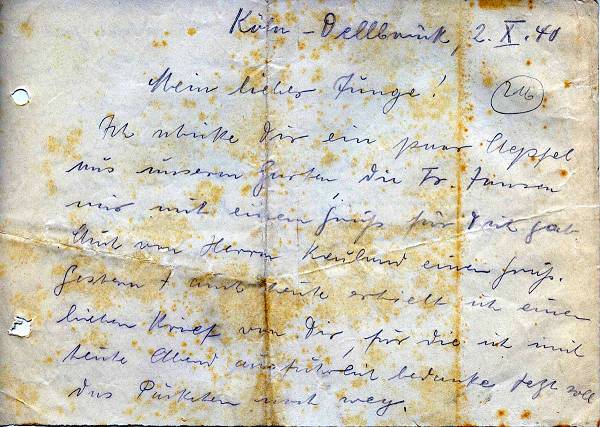 Köln-Dellbrück, 2.X.40
Mein lieber Junge!
Ich schicke Dir ein paar Aepfel
aus unserm Garten, die Fr. Jansen
mir mit einem Gruß für Dich gab
Auch von Herrn einen Gruß.
Gestern + auch heute erhielt ich einen
lieben Brief von Dir, für die ich mich
heute Abend ausführlich bedanke, jetzt soll
das Päckchen noch weg.